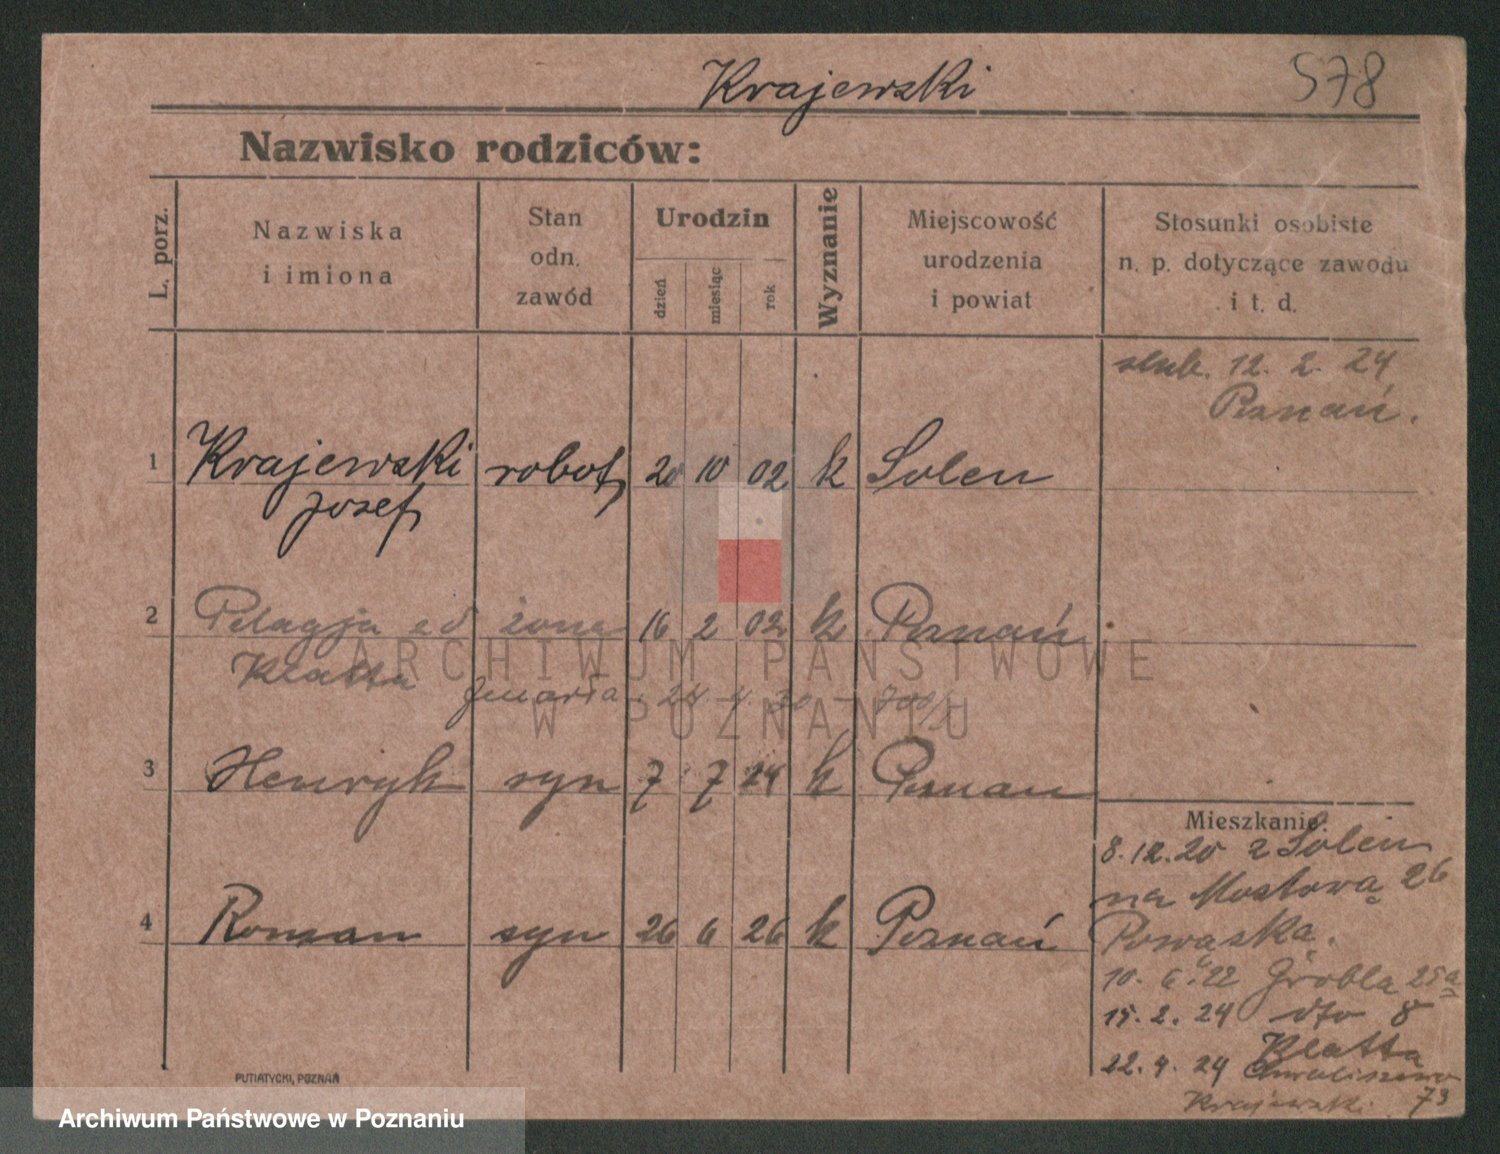 Krajewski 578
Nazwisko rodziców:
L. porz.
Nazwiska
i imiona
Stan
odn.
zawód
Urodzin
dzień
miesiąc
rok
Wyznanie
Miejscowość
urodzenia
i powiat
Stosunki osobiste
n. p. dotyczące zawodu
i t. d.
ślub. 12. 2. 24
Poznań.
1 Krajewski robot. 20 10 02 k Solen
Josef
2 Pelagja żona 16 2 02 k Poznań
Klatta
zmarła 24. 4. 30
3 Henryk syn 7 7 24 k Poznan
4 Roman syn 26 6 26 k Poznań
Mieszkanie:
8. 12. 20 z Solen
na Mostową 26
Powąska.
10. 6. 22 Grobla 25a
15. 2. 24 dto 8
Klatta
22. 4. 24 Chwaliszewo
Krajewski 73
PUTIATYCKI, POZNAŃ
ARCHIWUM PAŃSTWOWE
W POZNANIU
Archiwum Państwowe w Poznaniu